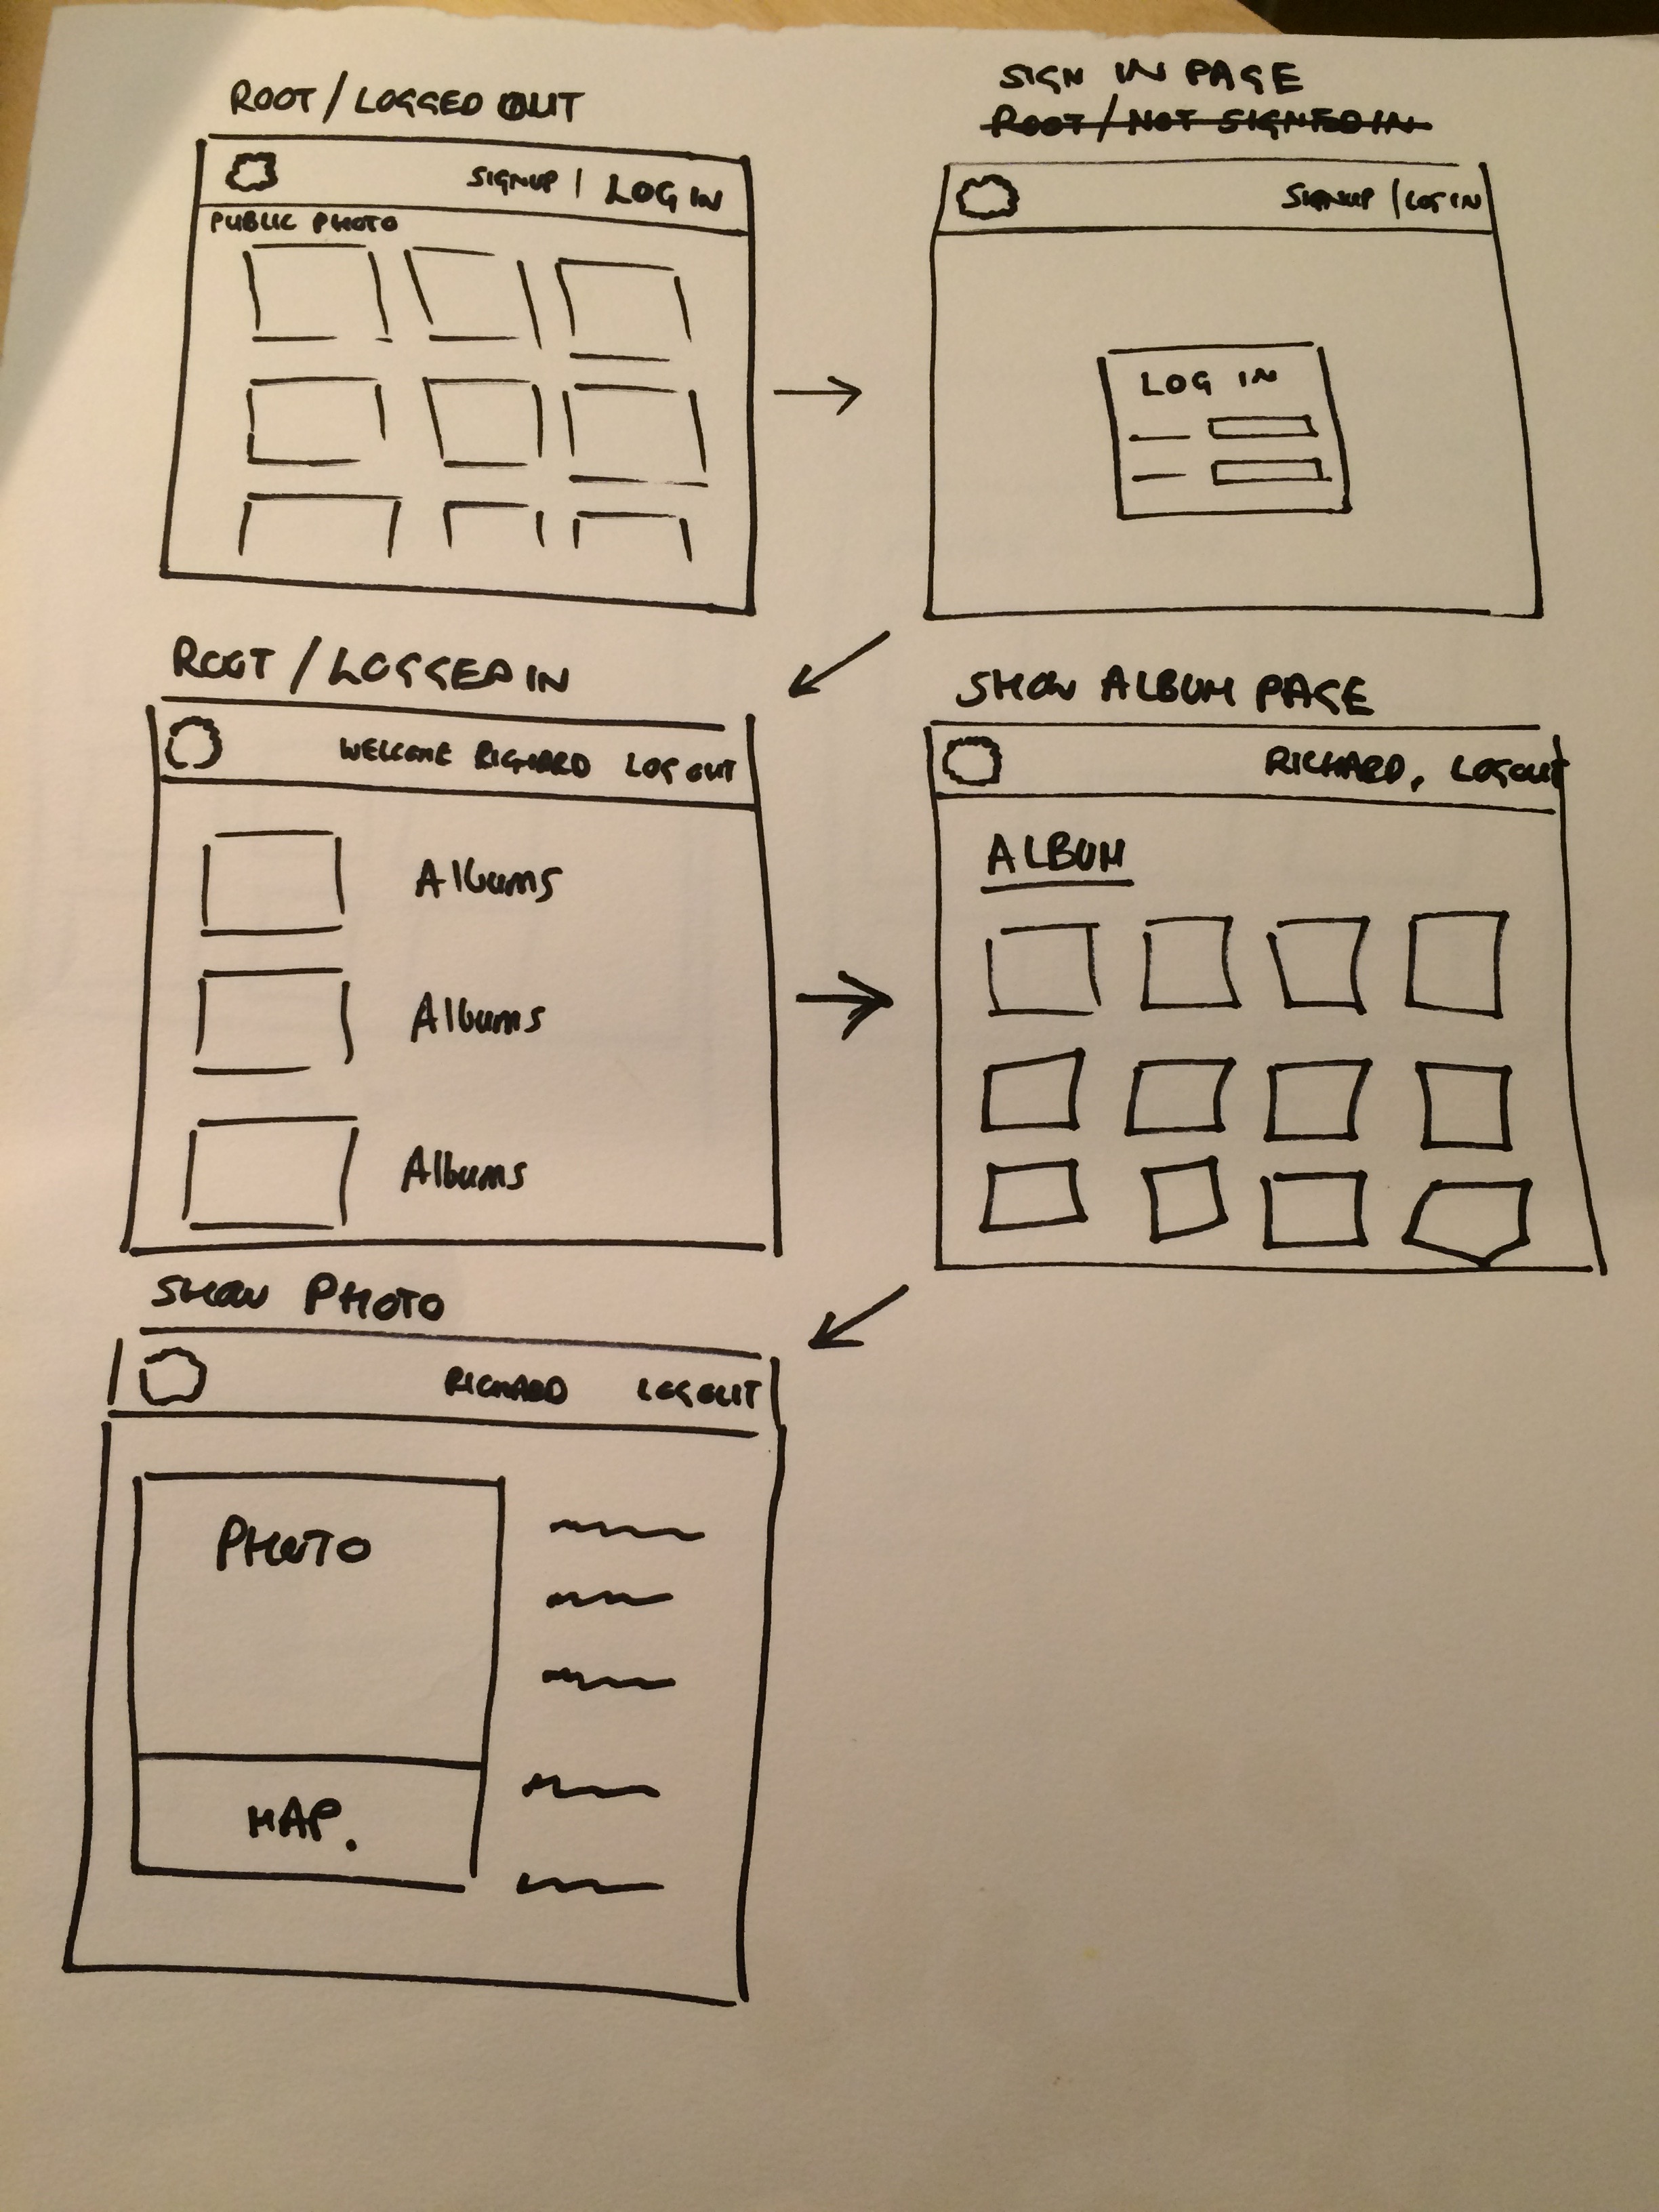 ROOT / LOGGED OUT
SIGNUP | LOG IN
PUBLIC PHOTO
SIGN IN PAGE
ROOT / NOT SIGNED IN
SIGNUP | LOG IN
LOG IN
ROOT / LOGGED IN
WELCOME RICHARD LOG OUT
Albums
Albums
Albums
SHOW ALBUM PAGE
RICHARD, LOGOUT
ALBUM
SHOW PHOTO
RICHARD LOGOUT
PHOTO
MAP.